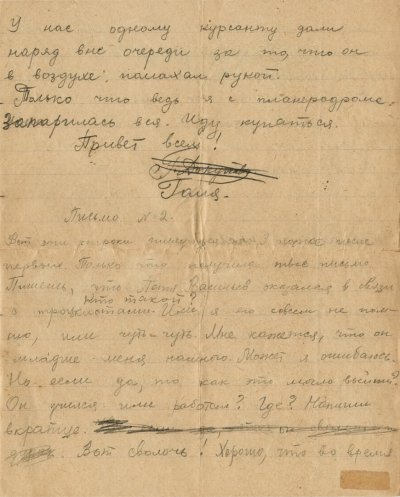 У нас одному курсанту дали
наряд вне очереди за то, что он
в воздухе, помахал рукой.
Только что ведь я с планеродрома.
Запарилась вся. Иду купаться.
Привет всем!
Галя.
Письмо № 2.
Вот эти строки дня 3 позже после
первых. Только что получила твое письмо
Пишешь, что Петя Васильев оказался в связи
кто такой?
с троцкистами. Имей, я его совсем не пом-
ню, или чуть-чуть. Мне кажется, что он
младше меня намного. Может я ошибалось.
Но если да, то как это могло выйти?
Он учился или работал? Где? Напиши
вкратце.
Вот сволочь! Хорошо, что во время